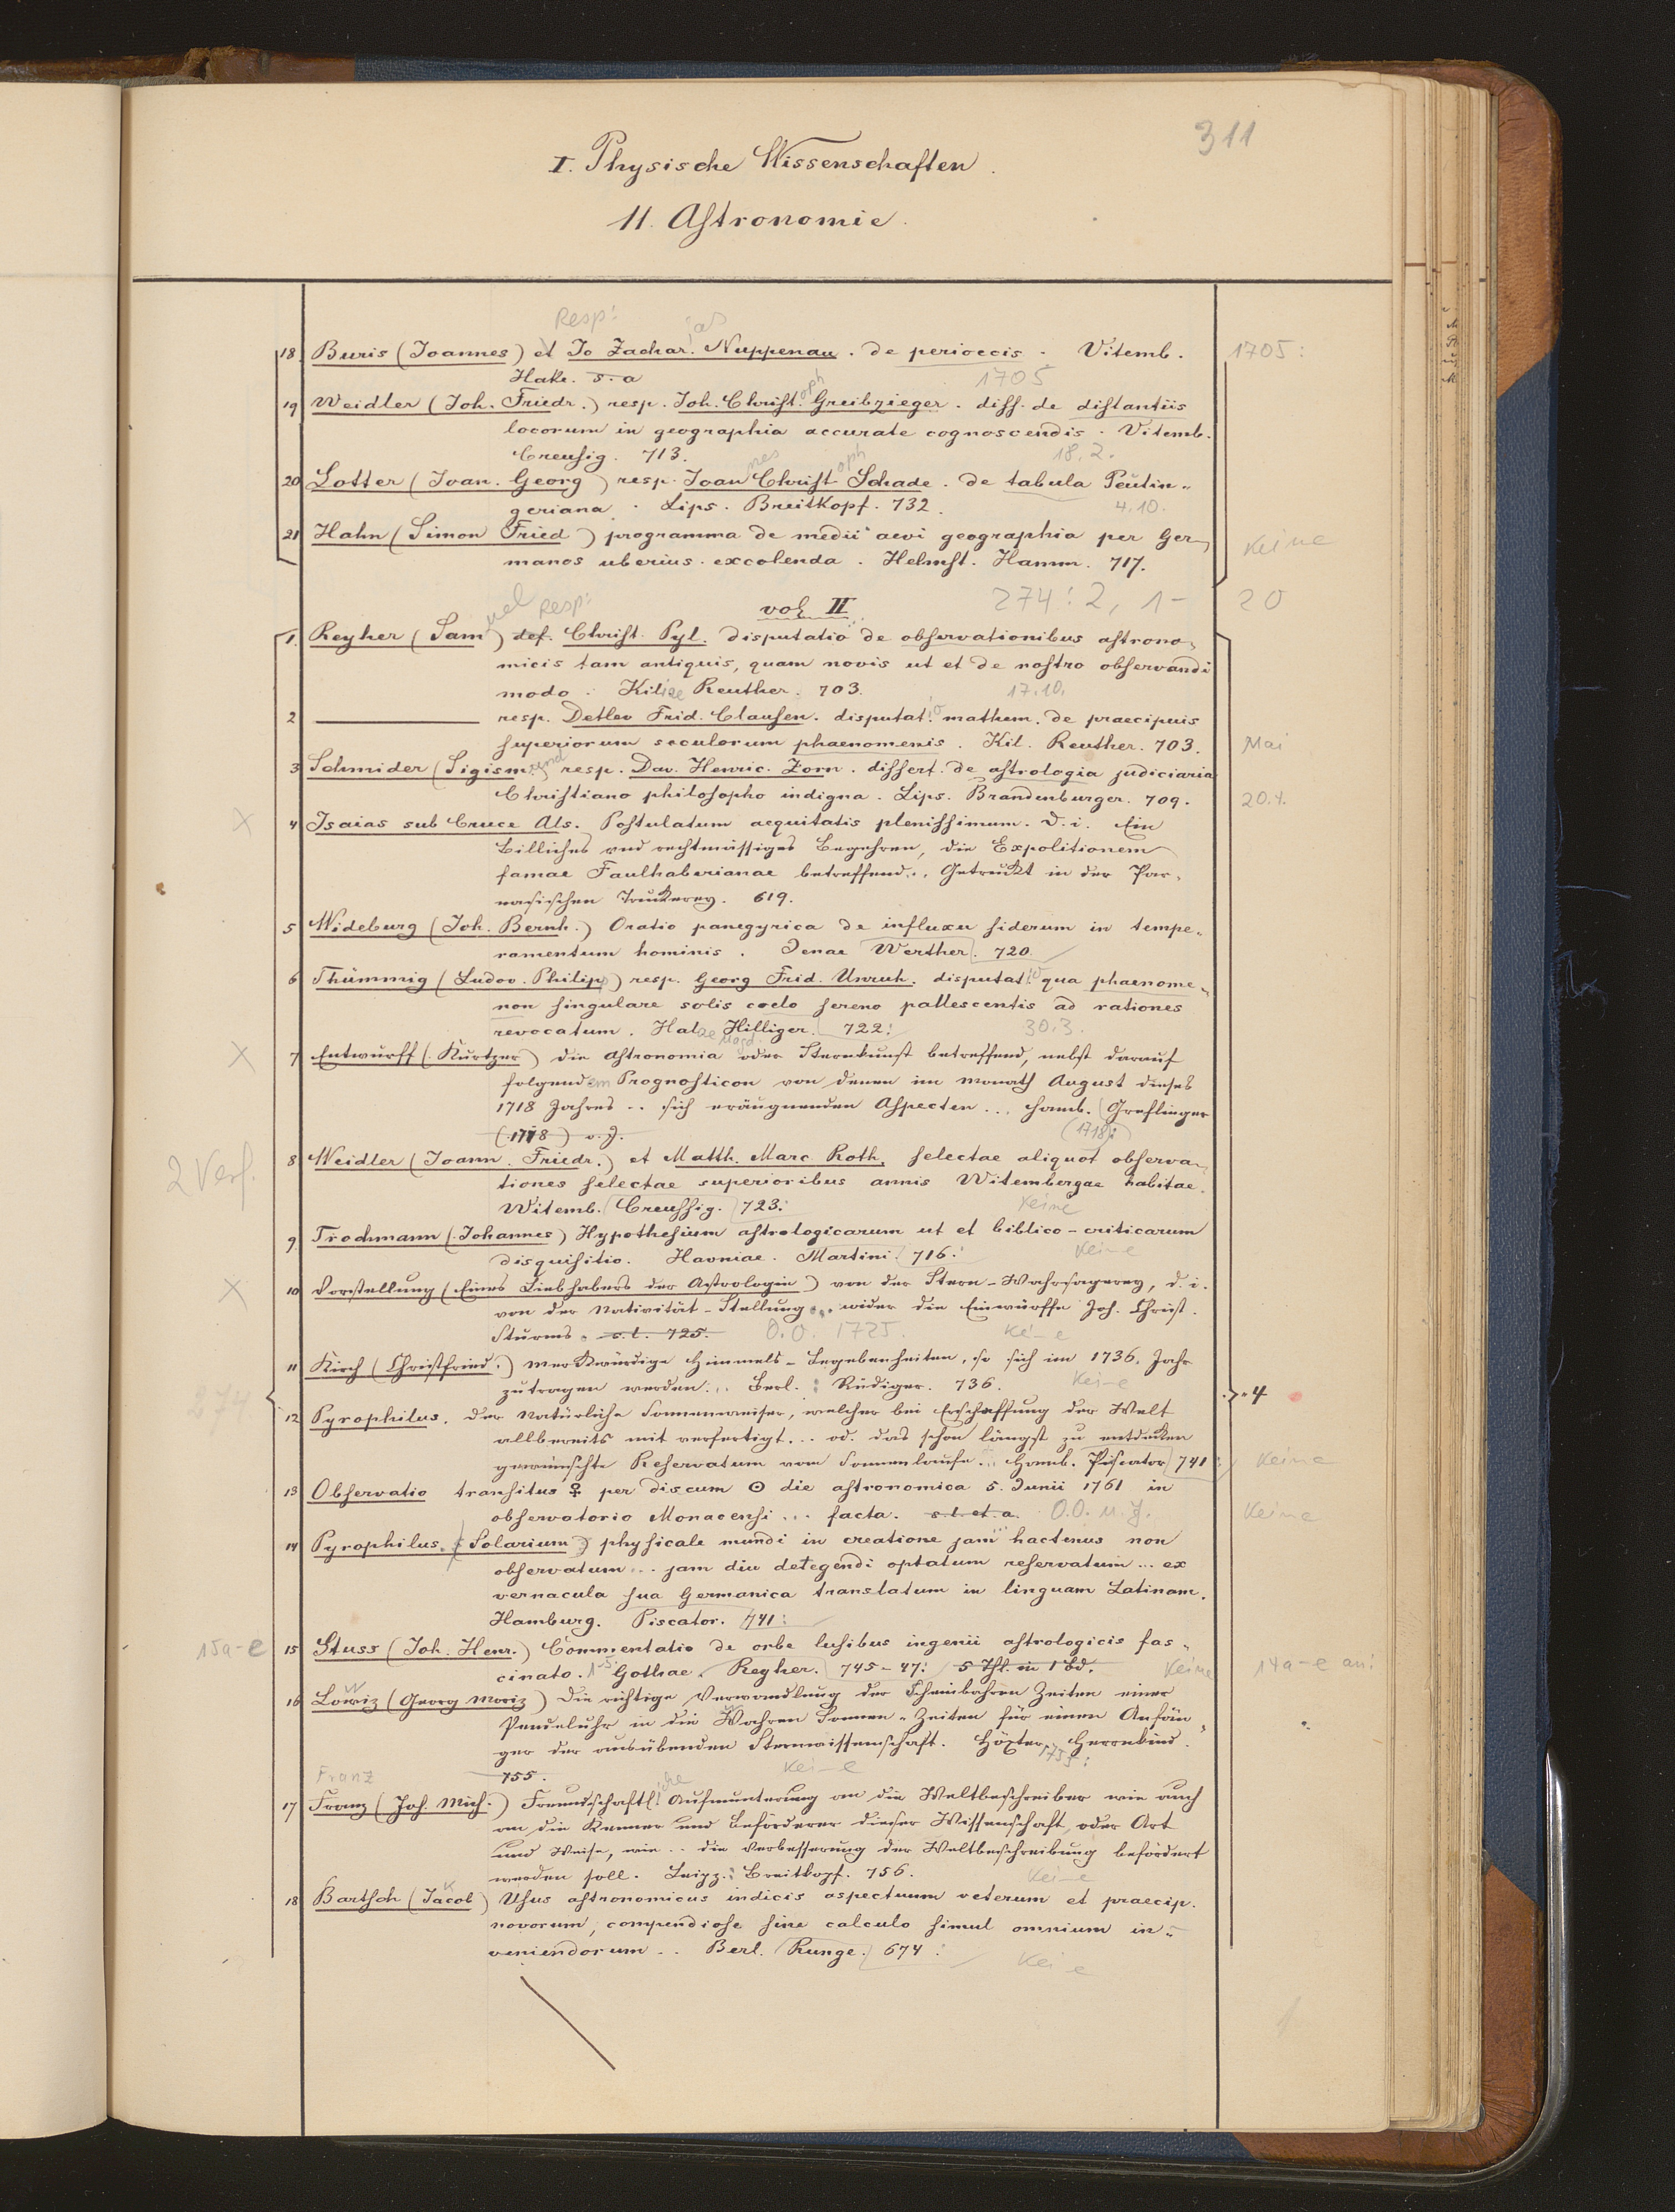 311
I. Physische Wissenschaften.
11. Astronomie.
Resp: ias
18 Buris (Joannes) et Jo Zachar. Nuppenau. de perioecis. Vitemb. 1705:
Hake. s. a 1705
19 Weidler (Joh. Friedr.) resp. Joh. Christoph Greibzieger. diss. de distantiis
locorum in geographia accurate cognoscendis. Vitemb.
Creusig. 713. 18.2.
20 Lotter (Joan. Georg) resp. Joannes Christoph Schade. de tabula Peutin-
geriana. Lips. Breitkopf. 732. 4.10.
21 Hahn (Simon Fried) programma de medii aevi geographia per Ger- Keine
manos uberius excolenda. Helmst. Hamm. 717.
vol II 274: 2, 1- 20
1. Reyher (Samuel) def. Resp: Christ. Pyl. disputatio de observationibus astrono-
micis tam antiquis, quam novis ut et de nostro observandi
modo. Kiliae Reuther. 703. 17.10.
2 ——— resp. Detlev Frid. Clausen. disputatio mathem. de praecipuis
superiorum seculorum phaenomenis. Kil. Reuther. 703. Mai
3 Schmider (Sigismund resp. Dav. Henric. Zorn. dissert. de astrologia judiciaria
Christiano philosopho indigna. Lips. Brandenburger. 709. 20.4.
x 4 Isaias sub Cruce Als. Postulatum aequitatis plenissimum. D. i. Ein
billiches und rechtmässiges Begehren, die Expolitionem
famae Faulhaberianae betreffend.. Getruckt in der Par-
nasischen Truckerey. 619.
5 Wideburg (Joh. Bernh.) Oratio panegyrica de influxu siderum in tempe-
ramentum hominis. Jenae Werther. 720
6 Thümmig (Ludov. Philipp) resp. Georg Frid. Unruh. disputatio qua phaenome-
non singulare solis coelo sereno pallescentis ad rationes
revocatum. Halae Hilliger. 722: 30.3.
x 7 Entwurff (Kurtzer) die Astronomia oder Sternkunst betreffend, nebst darauf
folgendem Prognosticon von denen im Monath August dieses
1718 Jahres .. sich eräugnenden Aspecten ... Hamb. Greflinger
(1718) o. J. (1718):
2 Verf. 8 Weidler (Joann. Friedr.) et Matth. Marc Roth. selectae aliquot observa-
tiones selectae superioribus annis Witembergae habitae.
Witemb. Creussig. 723: Keine
9. Trochmann (Johannes) Hypothesium astrologicarum ut et biblico-criticarum
disquisitio. Havniae. Martini 716: Kei-e
x 10 Vorstellung (Eines Liebhabers der Astrologie) von der Stern-Wahrsagerey, d. i.
von der Nativität-Stellung... wider die Einwürffe Joh. Christ.
Sturms. s. l. 725. O. O. 1725. Kei-e
11 Kirch (Christfried.) Merkwürdige Himmels-Begebenheiten, so sich im 1736. Jahr
zutragen werden... Berl.: Rüdiger. 736. Kei-e
274 4
12 Pyrophilus. Der Natürliche Sonnenweiser, welcher bei Erschaffung der Welt
allbereits mit verfertigt... od. das schon längst zu entdecken
gewünschte Reservatum vom Sonnenlaufe... Hamb. Piscator 741: Keine
13 Observatio transitus ♀ per discum ☉ die astronomica 5. Junii 1761 in
observatorio Monacensi ... facta. s. l. et. a. O. O. u. J. Keine
14 Pyrophilus. Solarium physicale mundi in creatione jam hactenus non
observatum... jam diu detegendi optatum reservatum ... ex
vernacula sua Germanica translatum in linguam Latinam.
Hamburg. Piscator. 741:
15a-e 15 Stuss (Joh. Henr.) Commentatio de orbe lusibus ingenii astrologicis fas-
cinato. 1-5: Gothae. Reyher. 745-47: 5 Thl. in 1 Bd. Keine 14a-e an:
16 Lowiz (Georg Moriz) Die richtige Verwandlung der Scheinbahren Zeiten einer
Penduluhr in die Wahren Sonnen-Zeiten für einen Anfän-
ger der ausübenden Sternwissenschaft. Höxter. Herrnkind.
755. Kei-e 1755:
Franz
17 Franz (Joh. Mich.) Freundschaftliche Aufmunterung an die Weltbeschreiber wie auch
an die Kenner und Beförderer dieser Wissenschaft, oder Art
und Weise, wie .. die Verbesserung der Weltbeschreibung befördert
werden soll. Leipz.: Breitkopf. 756. Kei-e
18 Bartsch (Jacob) Usus astronomicus indicis aspectuum veterum et praecip.
novorum, compendiose sine calculo simul omnium in-
veniendorum .. Berl. Runge. 674: Kei-e